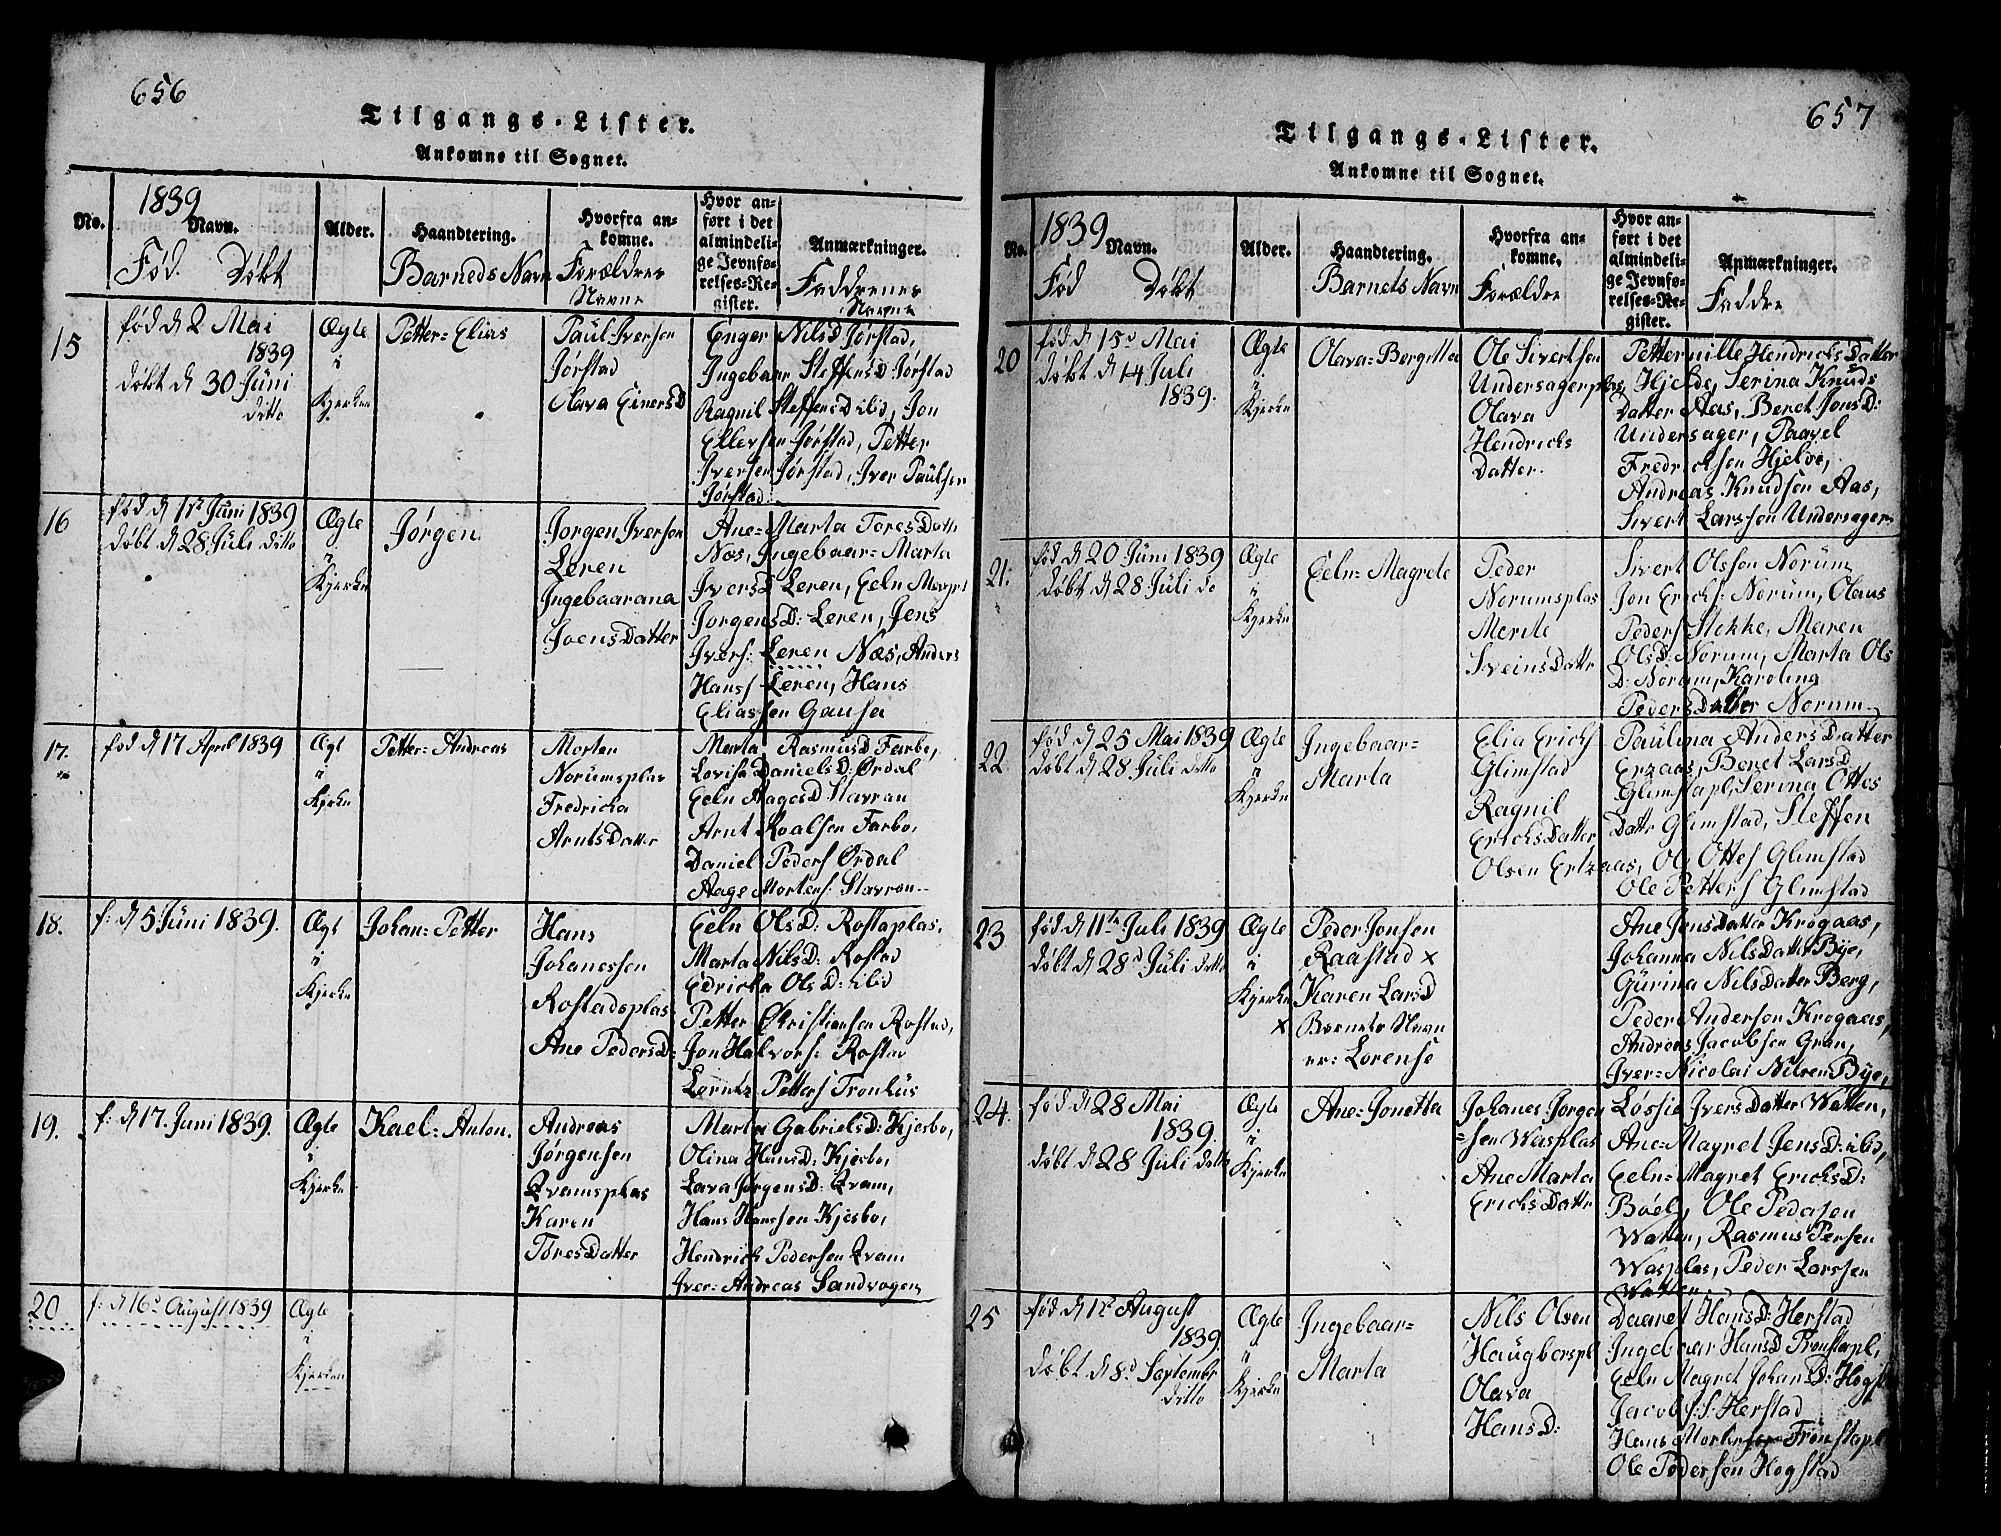 656
Tilgangs-Lister.
Ankomne til Sognet.
1839
No.
Navn.
Alder.
Haandtering.
Hvorfra an-
komne.
Hvor an-
ført i det
almindeli-
ge Jevnfø-
relses-Re-
gister.
Anmærkninger.
Fød. Døbt
Barneds Navn
Forældres
Navne
Faddrenes
Navne
15
fød d 2 Mai
1839
døbt d 30 Juni
ditto
Ægte
i
Kjerken
Petter=Elias
Paul Iversen
Jørstad
Olava Einersd
Enger Nilsd Jørstad,
Ingebaar Steffensd Jørstad
Ragnil Steffensd ibid, Jon
Ellevsen Jørstad, Petter
Iversen Jørstad, Iver Paulsen
Jørstad.
16
fød d 1ste Juni 1839
døbt d 28 Juli ditto
Ægte
i
Kjerken
Jørgen
Jorgen Iversen
Leren
Ingebaarana
Joens Datter
Ane=Marta Tores Datt
Næs, Ingebaar=Marta
Iversd Leren, Eeln Magret
Jorgens D: Leren, Jens
Ivers: Leren Næs, Anders
Hanss Leren, Hans
Eliassen Gausen
17.
fød d 17 April 1839
Ægt
i
Kjerke
Petter=Andreas
Morten
Norumsplas
Fredricka
Arnts Datter
Marta RasmusD Farbo,
Lovise Daniels D: Ørdal
Eeln AagesD Stavran
Arnt Roalsen Farbo,
Daniel Peders Ørdal
Aage Mortens: Stavron..
18.
f: d 5 Juni 1839.
Ægt
i
Kjerke
Johan=Petter
Hans
Johanessen
Rostadsplas
Ane PedersD:
Eeln OlsD: Rostaplas,
Marta NilsD: Rostad
Edricka Ols D: ibid
Petter Christiansen Rostad,
Jon Halvors: Rostad
Lornts Petters Tronhus
19.
f: d 17. Juni 1839.
Ægte
i
Kjerke
Kael=Anton.
Andreas
Jørgensen
Qvamsplas
Karen
Tores Datter
Marta GabrielsD: Kjesbo,
Olina HansD: Kjesbo,
Lava JørgensD: Qvam,
Hans Hanssen Kjesbo,
Hendrich Pedersen Qvam
Iver=Andreas Sandvogen
20
f: d 16d August 1839
Ægte
i
Kjerken
657
Tilgangs-Lister.
Ankomne til Sognet.
1839
No.
Navn.
Alder.
Haandtering.
Hvorfra an-
komne.
Hvor an-
ført i det
almindeli-
ge Jevnfø-
relses-Re-
gister.
Anmærkninger.
Fød Døbt
Barnets Navn
Forældre
Faddre
20
fød d 15d Mai
døbt d 14 Juli
1839.
Ægte
i
Kjerke
Olava=Bergitta
Ole Sivertsen
Undersagerplas
Olava
Hendricks
Datter.
Petternille Hendricks Datter
Hjelde, Serina Knuds
Datter Aas, Beret JonsD:
Undersager, Paavel
Fredrichsen Hjelde,
Andreas Knudsen Aas,
Sivert Larssen Undersager
21.
fød d 20 Juni 1839
døbt d 28 Juli do
Ægte
i
Kjerke
Eeln=Magrete
Peder
Norumsplas
Merite
Sveins Datter
Sivert Olssen Norum
Jon Erichs: Norum, Olaus
Peders Stekke, Maren
OlsD: Norum, Marta Ols
D: Norum, Karolina
Peders Datter Norum
22
fød d 25 Mai 1839
døbt d 28 Juli ditto
Ægte
i
Kjerke
Ingebaar=
Marta
Elia Erichs
Glimstad
Ragnil
Erichs Datter
Paulina Anders Datter
Erzaas, Beret LarsD
Glimstapl, Serina Ottes
Datter Glimstad, Steffen
Olsen Ertzaas, Ole Ottes Glimstad
Ole Petters Glimstad
23
fød d 11te Juli 1839
døbt d 28d Juli ditto
Ægte
i
Kjerke
x
Peder Jonsen
Raastad x
Karen LarsD
Barnets Navn
er: Lorense
Ane Jens Datter Krogaas,
Johanna Nils Datter Bye,
Gurina Nils Datter Berg,
Peder Andersen Krogaas,
Andreas Jacobsen Gran,
Iver=Nicolai Nilsen Bye,
24.
fød d 28 Mai
1839.
døbt d 28 Juli ditto
Ægte
i
Kjerke
Ane=Jonetta
Johanes Jorgen
=sen Wasplas
Ane Marta
Erichs Datter
Løssie Ivers Datter Watten,
Ane=Magret JensD: ibid,
Eeln=Magret ErichsD:
Bøel, Ole Pedersen
Watten, Rasmus Persen
Wasplas, Peder Larssen
Watten
25
fød d 1ste August
1839.
døbt d 8d Septembr
ditto
Ægte
i
Kjerke
Ingebaar=
Marta
Nils Olsen
Haugberspl
Olava
HansD:
Daaret HansD: Herstad
Ingebaar HansD Tronstapl,
Eeln Magret JohanD: Høgst
Jacob S: Herstad
Hans Mortensen Tronstapl
Ole Pedersen Høgstad